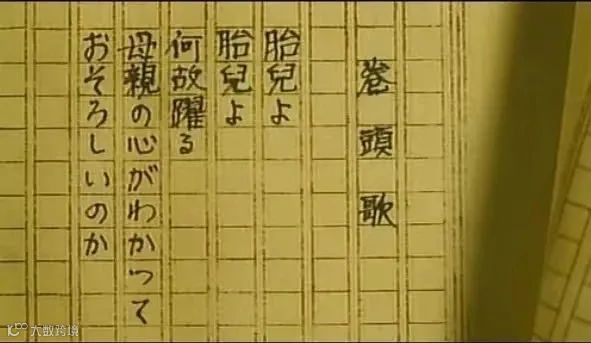 巻頭歌
胎兒よ
胎兒よ
何故躍る
母親の心がわかつて
おそろしいのか
大数跨境